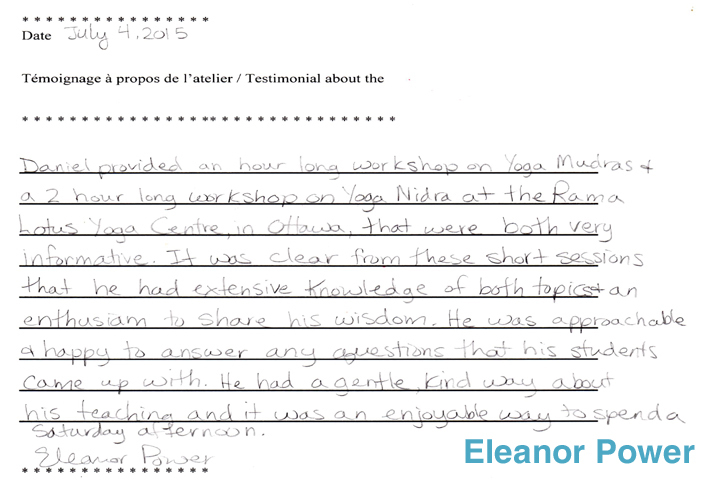 * * * * * * * * * * * * * * * *
Date July 4, 2015
Témoignage à propos de l'atelier / Testimonial about the
* * * * * * * * * * * * * * * * * * * * * * * * * * * * * * * *
Daniel provided an hour long workshop on Yoga Mudras &
a 2 hour long workshop on Yoga Nidra at the Rama
Lotus Yoga Centre, in Ottawa, that were both very
informative. It was clear from these short sessions
that he had extensive knowledge of both topics & an
enthusiam to share his wisdom. He was approachable
& happy to answer any questions that his students
came up with. He had a gentle, kind way about
his teaching and it was an enjoyable way to spend a
Saturday afternoon.
Eleanor Power
* * * * * * * * * * * * * * * *
Eleanor Power